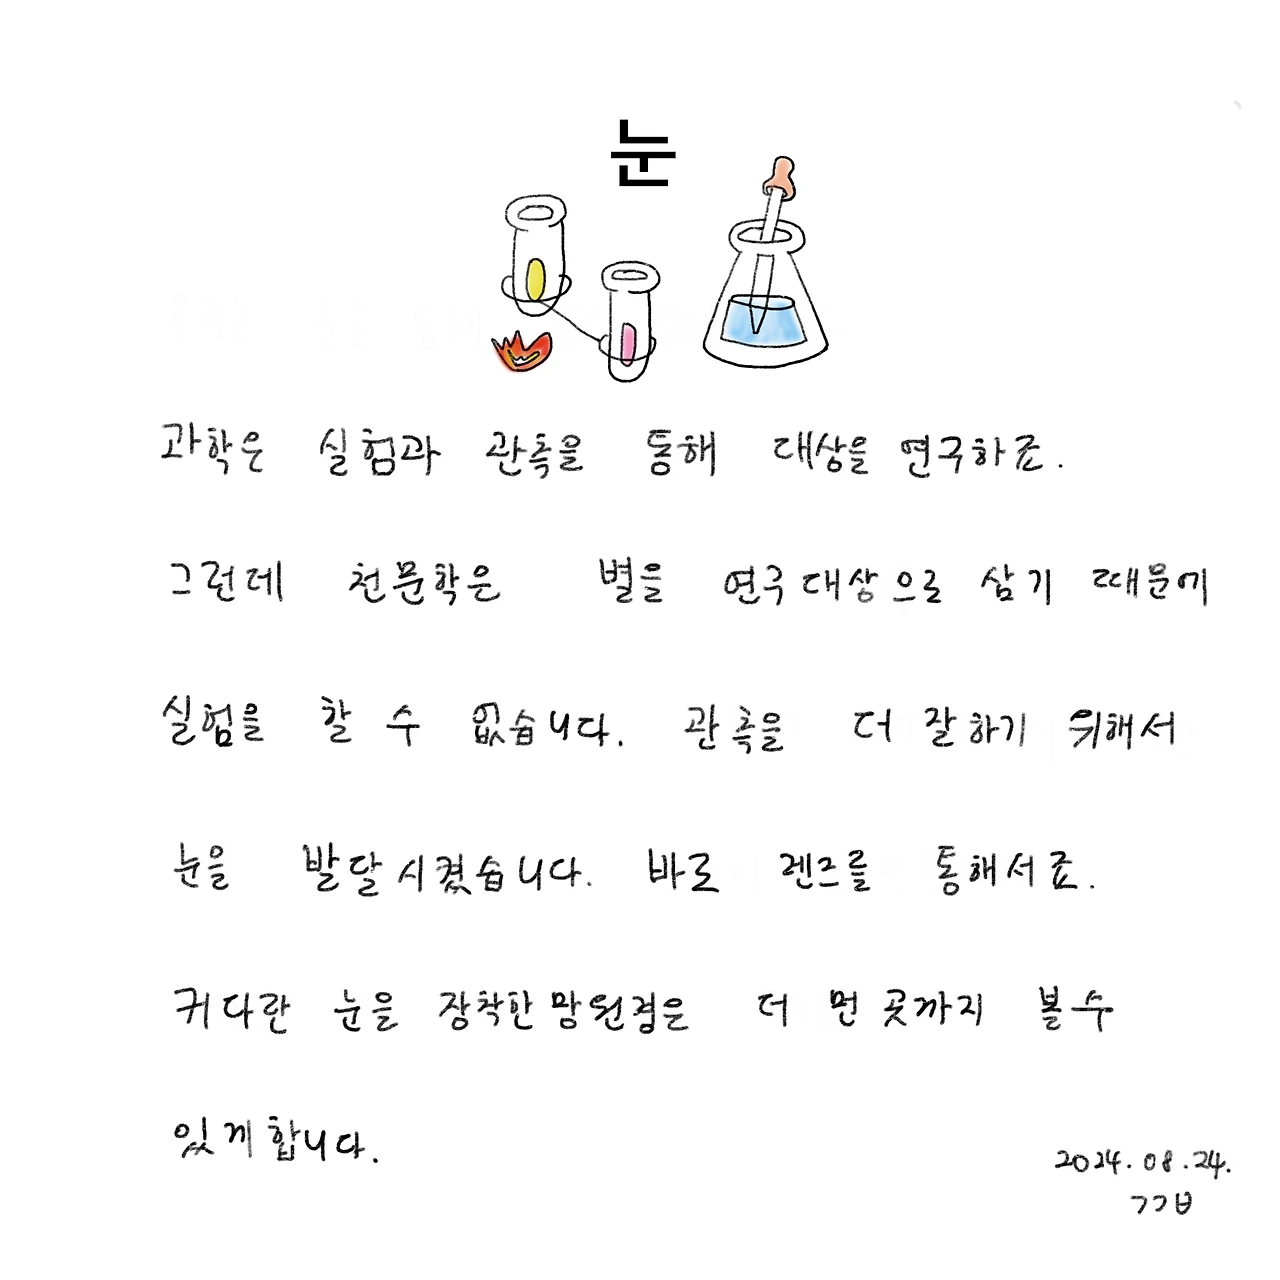 눈
과학은 실험과 관측을 통해 대상을 연구하죠.
그런데 천문학은 별을 연구대상으로 삼기 때문에
실험을 할 수 없습니다. 관측을 더 잘하기 위해서
눈을 발달시켰습니다. 바로 렌즈를 통해서죠.
커다란 눈을 장착한 망원경은 더 먼 곳까지 볼 수
있게 합니다.
2024.08.24.
ㄱㄱㅂ